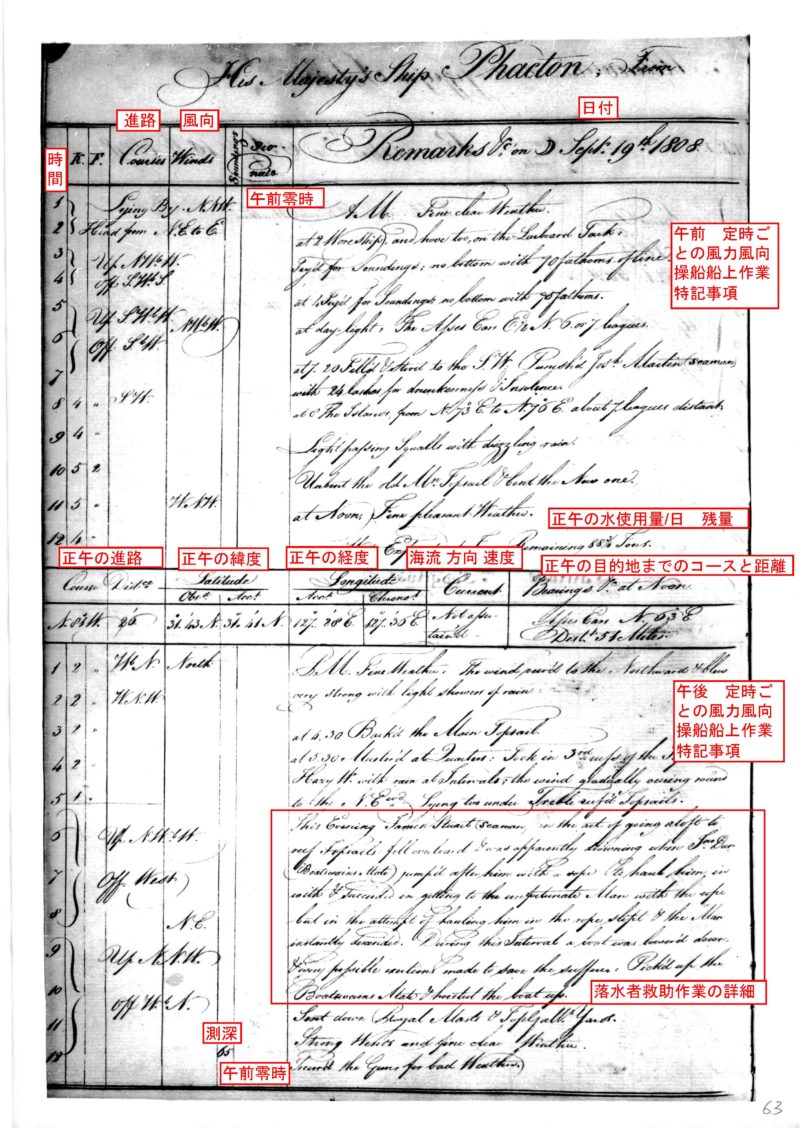 His Majesty's Ship Phaeton, From
進路 風向 日付
時間
K. F. Courses Winds Soundings Remarks &c on D Septr. 19th 1808
午前零時
1 Lying By N.N.W. A.M. Fine clear Weather.
2 Head from N.E. to E. at 2 Wore Ship, and hove too, on the Larboard Tack:
3 Up N.W.
Try'd for Soundings; no bottom with 70 fathoms of line.
4 off S.W.b S
at Try'd for Soundings no bottom with 70 fathoms.
午前 定時ご
との風力風向
操船船上作業
特記事項
5 Up S.W.b W N.W.b W. at day light; The Asses Ears E. N. 6 or 7 leagues.
6 Off S.b W.
7 at 7.20 Fill'd & stood to the S.W. Punish'd Josh. Martin (seaman)
with 24 lashes for drunkenness & Insolence.
8 4 " S.W. at 8 The Islands, from N. 73 E. to N. 76 E. about 7 leagues distant.
9 4 " Light passing Squalls with drizzling rain.
10 5 2 Unbent the old Mn. Topsail & bent the New one.
11 5 " W.N.W. at Noon, Fine pleasant Weather.
正午の水使用量/日 残量
12 4 " Remaining 88 Tons.
正午の進路 正午の緯度 正午の経度 海流 方向 速度 正午の目的地までのコースと距離
Course Distce Latitude Longitude Current Bearings &c at Noon
Obsd. Acct. Acct. Chronor.
N. 81 W. 26 31. 43 N. 31. 41 N. 127. 28 E. 127. 30 E. Not ascertain'd Asses Ears N. 63 E
Distce 51 Miles.
1 2 " W.b N. North P.M. Fine Weather. The wind veer'd to the Northward & blew
very strong with light showers of rain.
2 2 " W.N.W
3 2 " at 4.30 Back'd the Main Topsail.
4 2 " at 5.30 Muster'd at Quarters: Took in 3rd reefs of the
Hazy Wr. with rain at Intervals; the wind gradually veering round
5 1 " to the N.Eward Lying too under Treble reef'd Topsails.
午後 定時ご
との風力風向
操船船上作業
特記事項
This Evening James Stuart (seaman) in the act of going aloft to
6 Up N.W.b W. reef Topsails fell overboard & was apparently drowning when Jno. Dun
(Boatswains Mate) jump'd after him with a rope to haul him in
7 Off West with & succeeded in getting to the unfortunate Man with the rope
8 N.E. but in the attempt of hauling him in the rope slipt & the Man
instantly descended. During this Interval a boat was lower'd down,
9 Up N.N.W. & every possible exertions made to save the sufferer. Pick'd up the
10 off W.b N. Boatswains Mate & hoisted the boat up.
落水者救助作業の詳細
11 Sent down Royal Masts & Topgallt. Yards.
測深
Strong Winds and fine clear Weather.
12 65 Secur'd the Guns for bad Weather.
午前零時
63